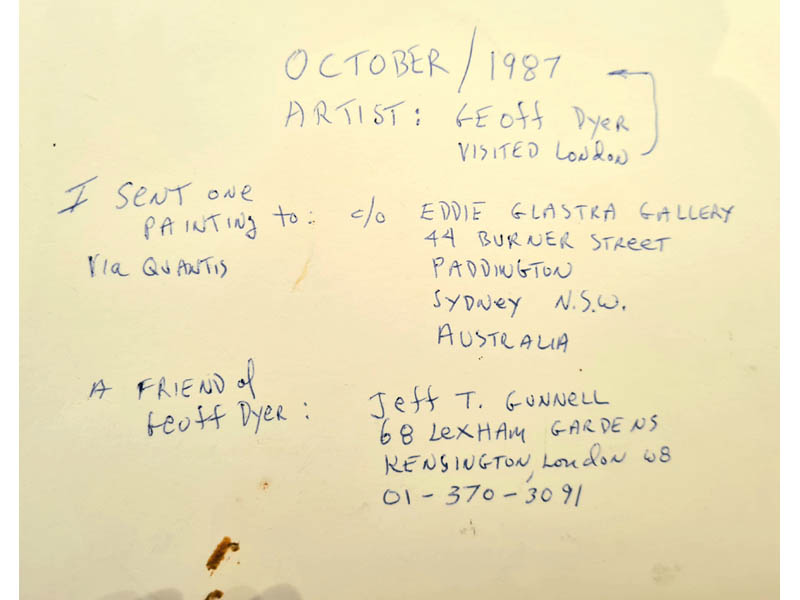 OCTOBER / 1987
ARTIST: GEOFF DYER
VISITED LONDON
I SENT ONE
PAINTING to: c/o EDDIE GLASTRA GALLERY
44 BURNER STREET
Via QUANTIS PADDINGTON
SYDNEY N.S.W.
AUSTRALIA
A FRIEND of
GEOFF DYER: Jeff T. GUNNELL
68 LEXHAM GARDENS
KENSINGTON, London W8
01-370-3091